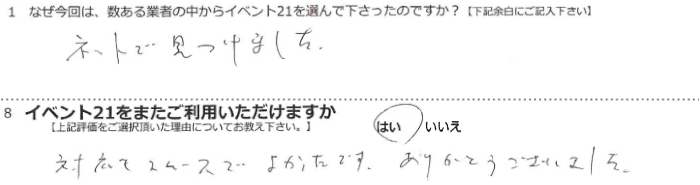 1 なぜ今回は、数ある業者の中からイベント21を選んで下さったのですか？【下記余白にご記入下さい】
ネットで見つけました。
8 イベント21をまたご利用いただけますか
【上記評価をご選択頂いた理由についてお教え下さい。】 はい / いいえ
対応もスムーズで よかったです。ありがとうございました。